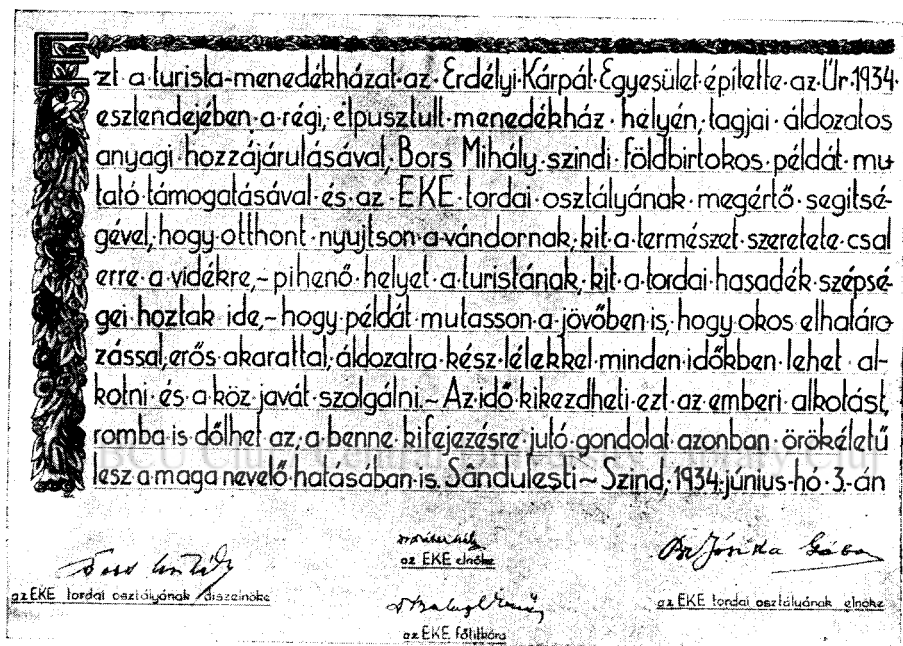 Ezt a turista-menedékházat az Erdélyi Kárpát Egyesület építette az Úr 1934
esztendejében a régi, elpusztult menedékház helyén, tagjai áldozatos
anyagi hozzájárulásával, Bors Mihály szindi földbirtokos példát mu-
tató támogatásával és az EKE tordai osztályának megértő segitsé-
gével, hogy otthont nyujtson a vándornak, kit a természet szeretete csal
erre a vidékre, ~ pihenő helyet a turistának, kit a tordai hasadék szépsé-
gei hoztak ide, ~ hogy példát mutasson a jövőben is, hogy okos elhatáro-
zással, erős akarattal, áldozatra kész lélekkel minden időkben lehet al-
kotni és a köz javát szolgálni. ~ Az idő kikezdheti ezt az emberi alkotást,
romba is dőlhet az, a benne kifejezésre jutó gondolat azonban örökéletű
lesz a maga nevelő hatásában is. Sândulesti ~ Szind, 1934. június hó 3.-án
BCU Cluj / Central University Library Cluj
az EKE elnöke
Br Jósika Gábor
az EKE tordai osztályának diszelnöke
az EKE tordai osztályának elnöke
az EKE főtitkára